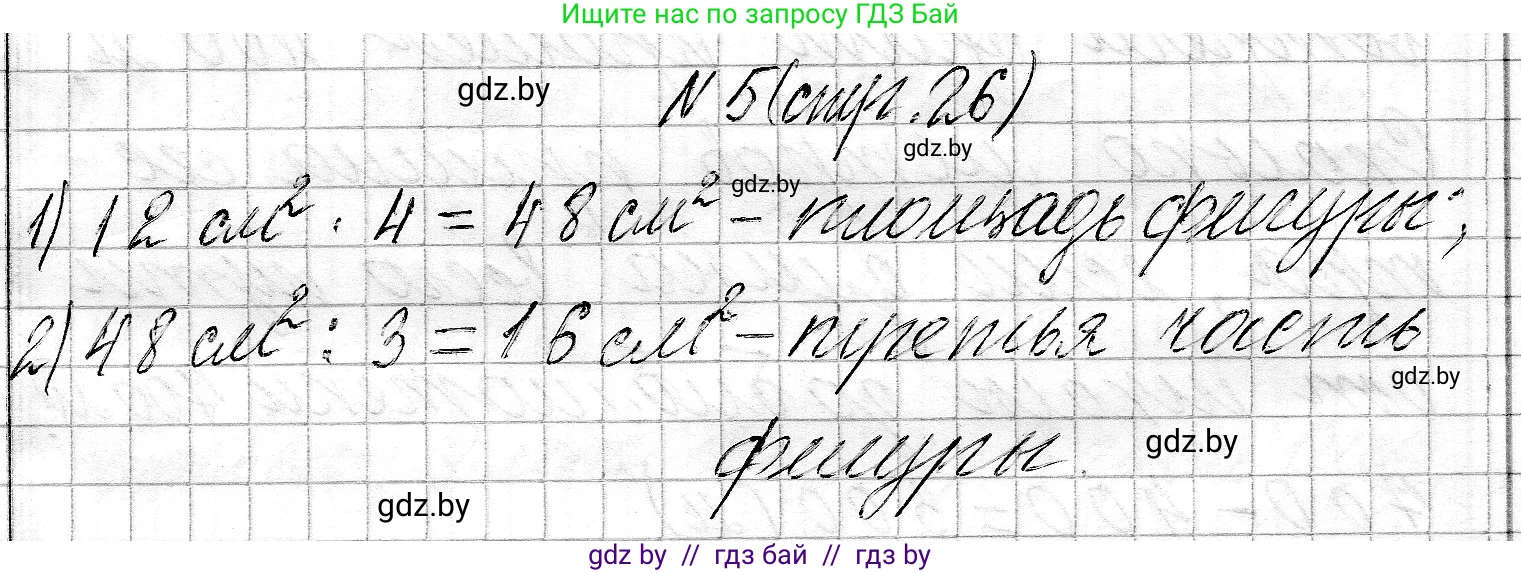 Ищите нас по запросу ГДЗ Бай
gdz.by
N 5(стр. 26)
gdz.by
gdz.by
1) 12 см² · 4 = 48 см² – площадь фигуры;
2) 48 см² : 3 = 16 см² – третья часть
gdz.by
фигуры.
gdz.by
gdz.by
gdz by // гдз бай // гдз by